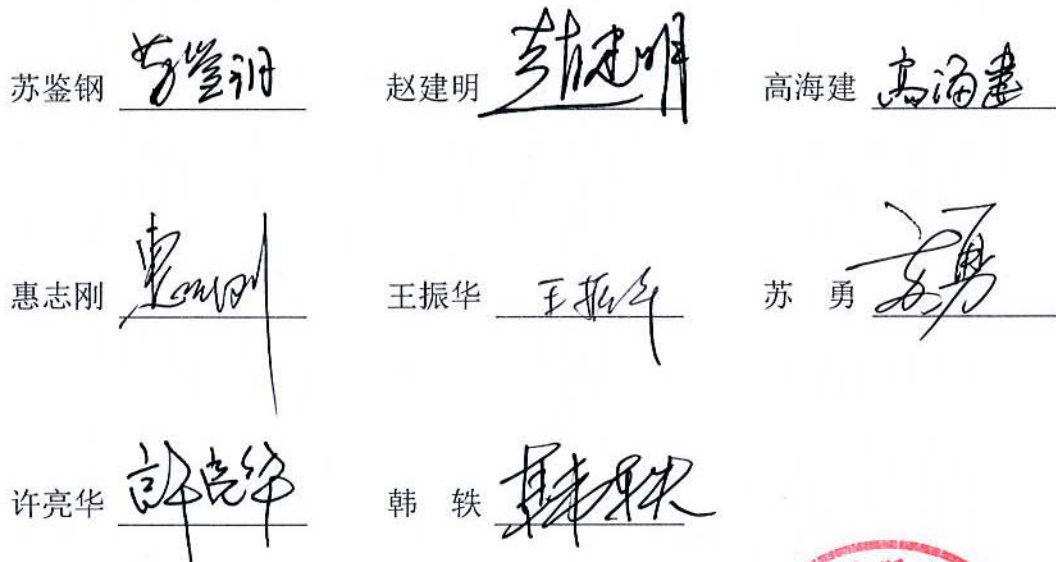 苏鉴钢 苏鉴钢 赵建明 赵建明 高海建 高海建
惠志刚 惠志刚 王振华 王振华 苏 勇 苏勇
许亮华 許亮华 韩 轶 韩轶